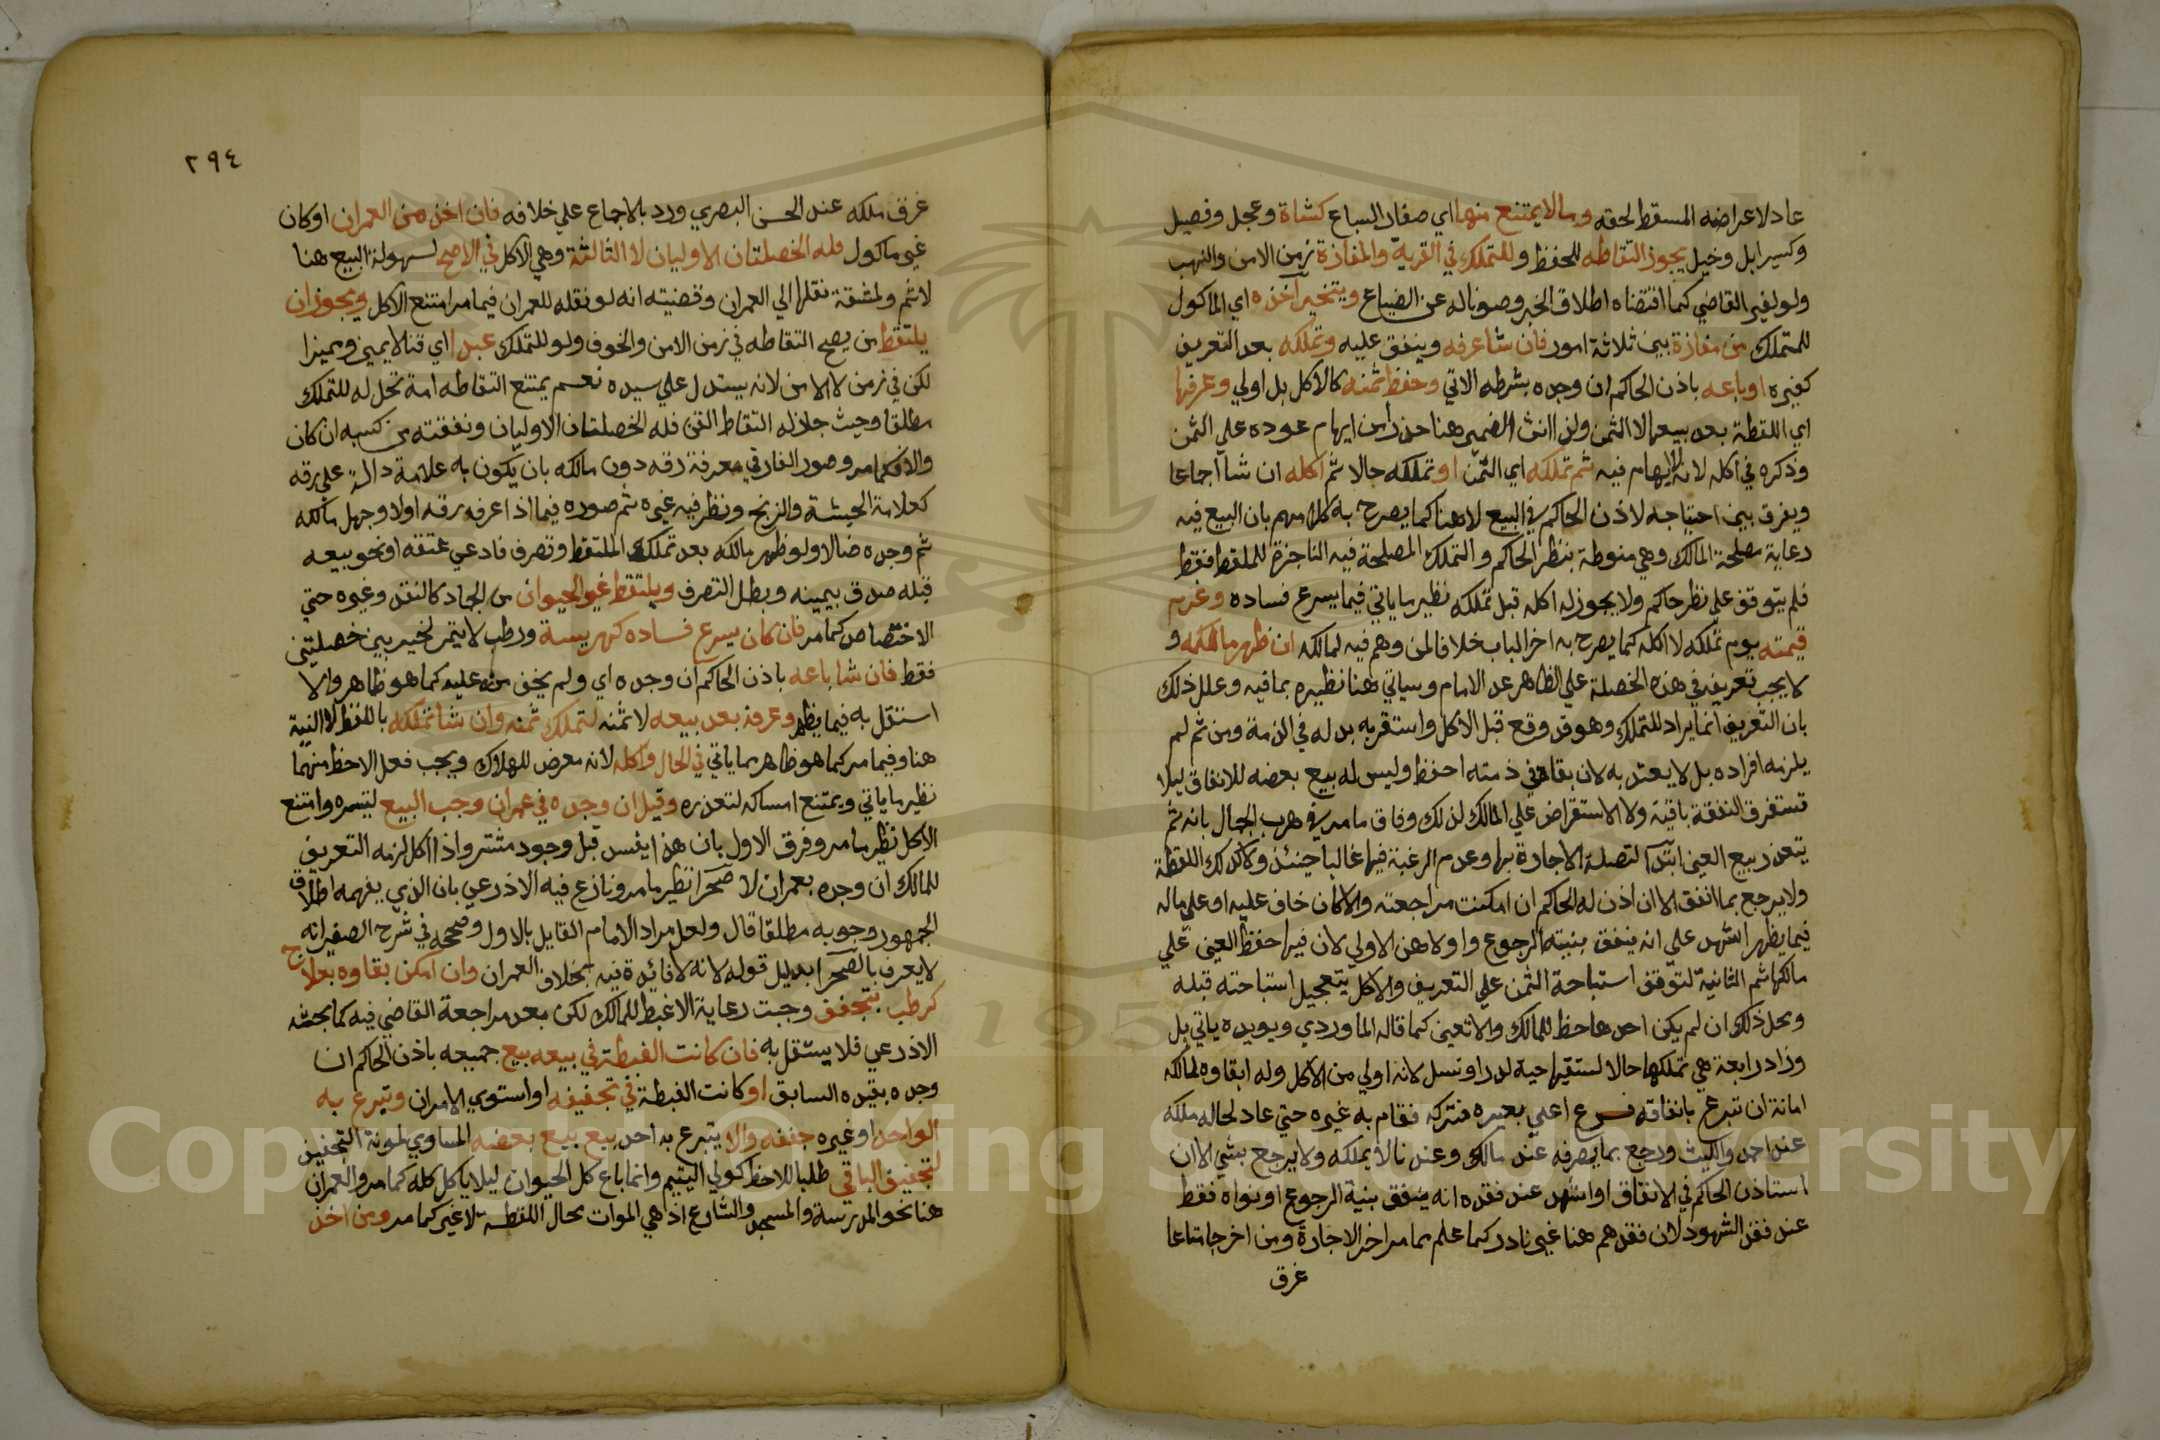 عاد لاعراضه المسقط لحقه وما لا يمتنع منها اي صغار السباع كشاة وعجل وفصيل
وكسير ابل وخيل يجوز التقاطه للحفظ وللتملك في القرية والمفازة زمن الامن والنهب
ولو لغير القاضي كما اقتضاه اطلاق الخبر وصونا له عن الضياع ويتخير اخذه اي الماكول
للتملك من مفازة بين ثلاثة امور فان شا عرفه وينفق عليه وتملكه بعد التعريف
كغيره او باعه باذن الحاكم ان وجده بشرطه الاتي وحفظ ثمنه كالاكل بل اولي وعرفها
اي اللقطة بعد بيعها لا الثمن ولذا انث الضمير هنا حذرا من ايهام عوده علي الثمن
وذكره في اكله لانه لا ايهام فيه ثم تملكه اي الثمن او تملكه حالا ثم اكله ان شا اجماعا
ويفرق بين احتياجه لاذن الحاكم في البيع لا هنا كما يصرح به كلامهم بان البيع فيه
رعاية مصلحة المالك وهي منوطة بنظر الحاكم والتملك المصلحة فيه الناجزة للملتقط فقط
فلم يتوقف علي نظر حاكم ولا يجوز له اكله قبل تملكه نظير ما ياتي فيما يسرع فساده وغرم
قيمته يوم تملكه لا اكله كما يصرح به اخر الباب خلافا لمن وهم فيه لمالكه ان ظهر مالكه و
لا يجب تعريفه في هذه الخصلة علي الظاهر عند الامام وسياتي هنا نظيره بما فيه وعلل ذلك
بان التعريف انما يراد للتملك وهو قد وقع قبل الاكل واستقر به بدله في الذمة ومن ثم لم
يلزمه افراده بل لا يعتد به لان بقاه في ذمته احفظ وليس له بيع بعضه للانفاق ليلا
تستغرق النفقة باقيه ولا الاستقراض علي المالك لذلك وفاق ما مر في هرب الجمال بانه ثم
يتعذر بيع العين ابتدا لتعلق الاجارة بها وعدم الرغبة فيها غالبا حينئذ ولا كذلك اللقطة
ولا يرجع بما انفق الا ان اذن له الحاكم ان امكنت مراجعته والا كان خاف عليه او علي ماله
فيما يظهر اشهد علي انه ينفق بنية الرجوع واولاهن الاولي لان فيها حفظ العين علي
مالكها ثم الثانية لتوقف استباحة الثمن علي التعريف والاكل يتعجيل استباحته قبله
ومحل ذلك ان لم يكن احدها حظ للمالك والا تعين كما قاله الماوردي ويويده ياتي بل
وزاد رابعة هي تملكها حالا لستقيها حية لدر او نسل لانه اولي من الاكل وله ابقاوه لمالكه
امانة ان تبرع بانفاقه فرع اعيي بعيره فتركه فقام به غيره حتي عاد لحاله ملكه
عند احمد والليث ورجع بما صرفه عند مالك وعندنا لا يملكه ولا يرجع بشي الا ان
استاذن الحاكم في الانفاق او اشهد عند فقده انه ينفق بنية الرجوع او نواه فقط
عند فقد الشهود لان فقدهم هنا غير نادر كما علم مما مر اخر الاجارة ومن اخرج متاعا
غرق
٢٩٤
غرق ملكه عند الحسن البصري ورد بالاجماع علي خلافه فان اخذه من العمران او كان
غير ماكول فله الخصلتان الاوليان لا الثالثة وهي الاكل في الاصح لسهولة البيع هنا
لا ثم ولمشقة نقلها الي العمران وقضيته انه لو نقله للعمران فيما مر امتنع الاكل ويجوز ان
يلتقط من يصح التقاطه في زمن الامن والخوف ولو للتملك عبدا اي قنا لا يميز ومميزا
لكن في زمن لا الامن لانه يستدل علي سيده نعم يمتنع التقاطه امة تحل له للتملك
مطلقا وحيث جاز له التقاط القن فله الخصلتان الاوليان ونفقته من كسبه ان كان
والا فكما مر وصور الفارقي معرفة رقه دون مالكه بان يكون به علامة دالة علي رقه
كعلامة الحبشة والزنج ونظر فيه غيره ثم صوره فيما اذا عرفه رقه اولا وجهل مالكه
ثم وجده ضالا ولو ظهر مالكه بعد تملك الملتقط وتصرف فادعي عتقه او نحو بيعه
قبله صدق بيمينه وبطل التصرف ويلتقط غير الحيوان من الجماد كالنقد وغيره حتي
الاختصاص كما مر فان كان يسرع فساده كهريسة ورطب لا يتمر تخير بين خصلتين
فقط فان شا باعه باذن الحاكم ان وجده اي ولم يخف منه عليه كما هو ظاهر والا
استقل به فيما يظهر وعرفه بعد بيعه لا ثمنه لتملك ثمنه وان شا تملكه باللفظ لا النية
هنا وفيما مر كما هو ظاهر مما ياتي في الحال واكله لانه معرض للهلاك ويجب فعل الاحظ منهما
نظير ما ياتي ويمتنع امساكه لتعذره وقيل ان وجده في عمران وجب البيع لتيسره وامتنع
الاكل نظير ما مر وفرق الاول بان هذا يفسد قبل وجود مشتر واذا اكل لزمه التعريف
للمالك ان وجده بعمران لا صحرا نظير ما مر ونازع فيه الاذرعي بان الذي يفهمه اطلاق
الجمهور وجوبه مطلقا قال ولعل مراد الامام القايل بالاول وصححه في شرح الصغير انه
لا يعرف بالصحرا بدليل قوله لانه لا فائدة فيه بخلاف العمران وان امكن بقاوه بعلاج
كرطب يتجفف وجبت رعاية الاغبط للمالك لكن بعد مراجعة القاضي فيه كما بحثه
الاذرعي فلا يستقل به فان كانت الغبطة في بيعه بيع جميعه باذن الحاكم ان
وجده بقيده السابق او كانت الغبطة في تجفيفه او استوي الامران وتبرع به
الواجد او غيره جففه والا يتبرع به احد بيع بعضه المساوي لمونة التجفيف
لتجفيف الباقي طلبا للاحظ كولي اليتيم وانما باع كل الحيوان ليلا ياكل كله كما مر والعمران
هنا نحو المدرسة والمسجد والشارع اذ هي الموات محال اللقطة لا غير كما مر ومن اخذ